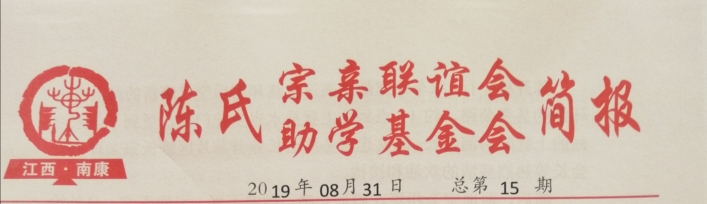 陈氏宗亲联谊会
助学基金会简报
江西·南康
2019年08月31日 总第 15 期